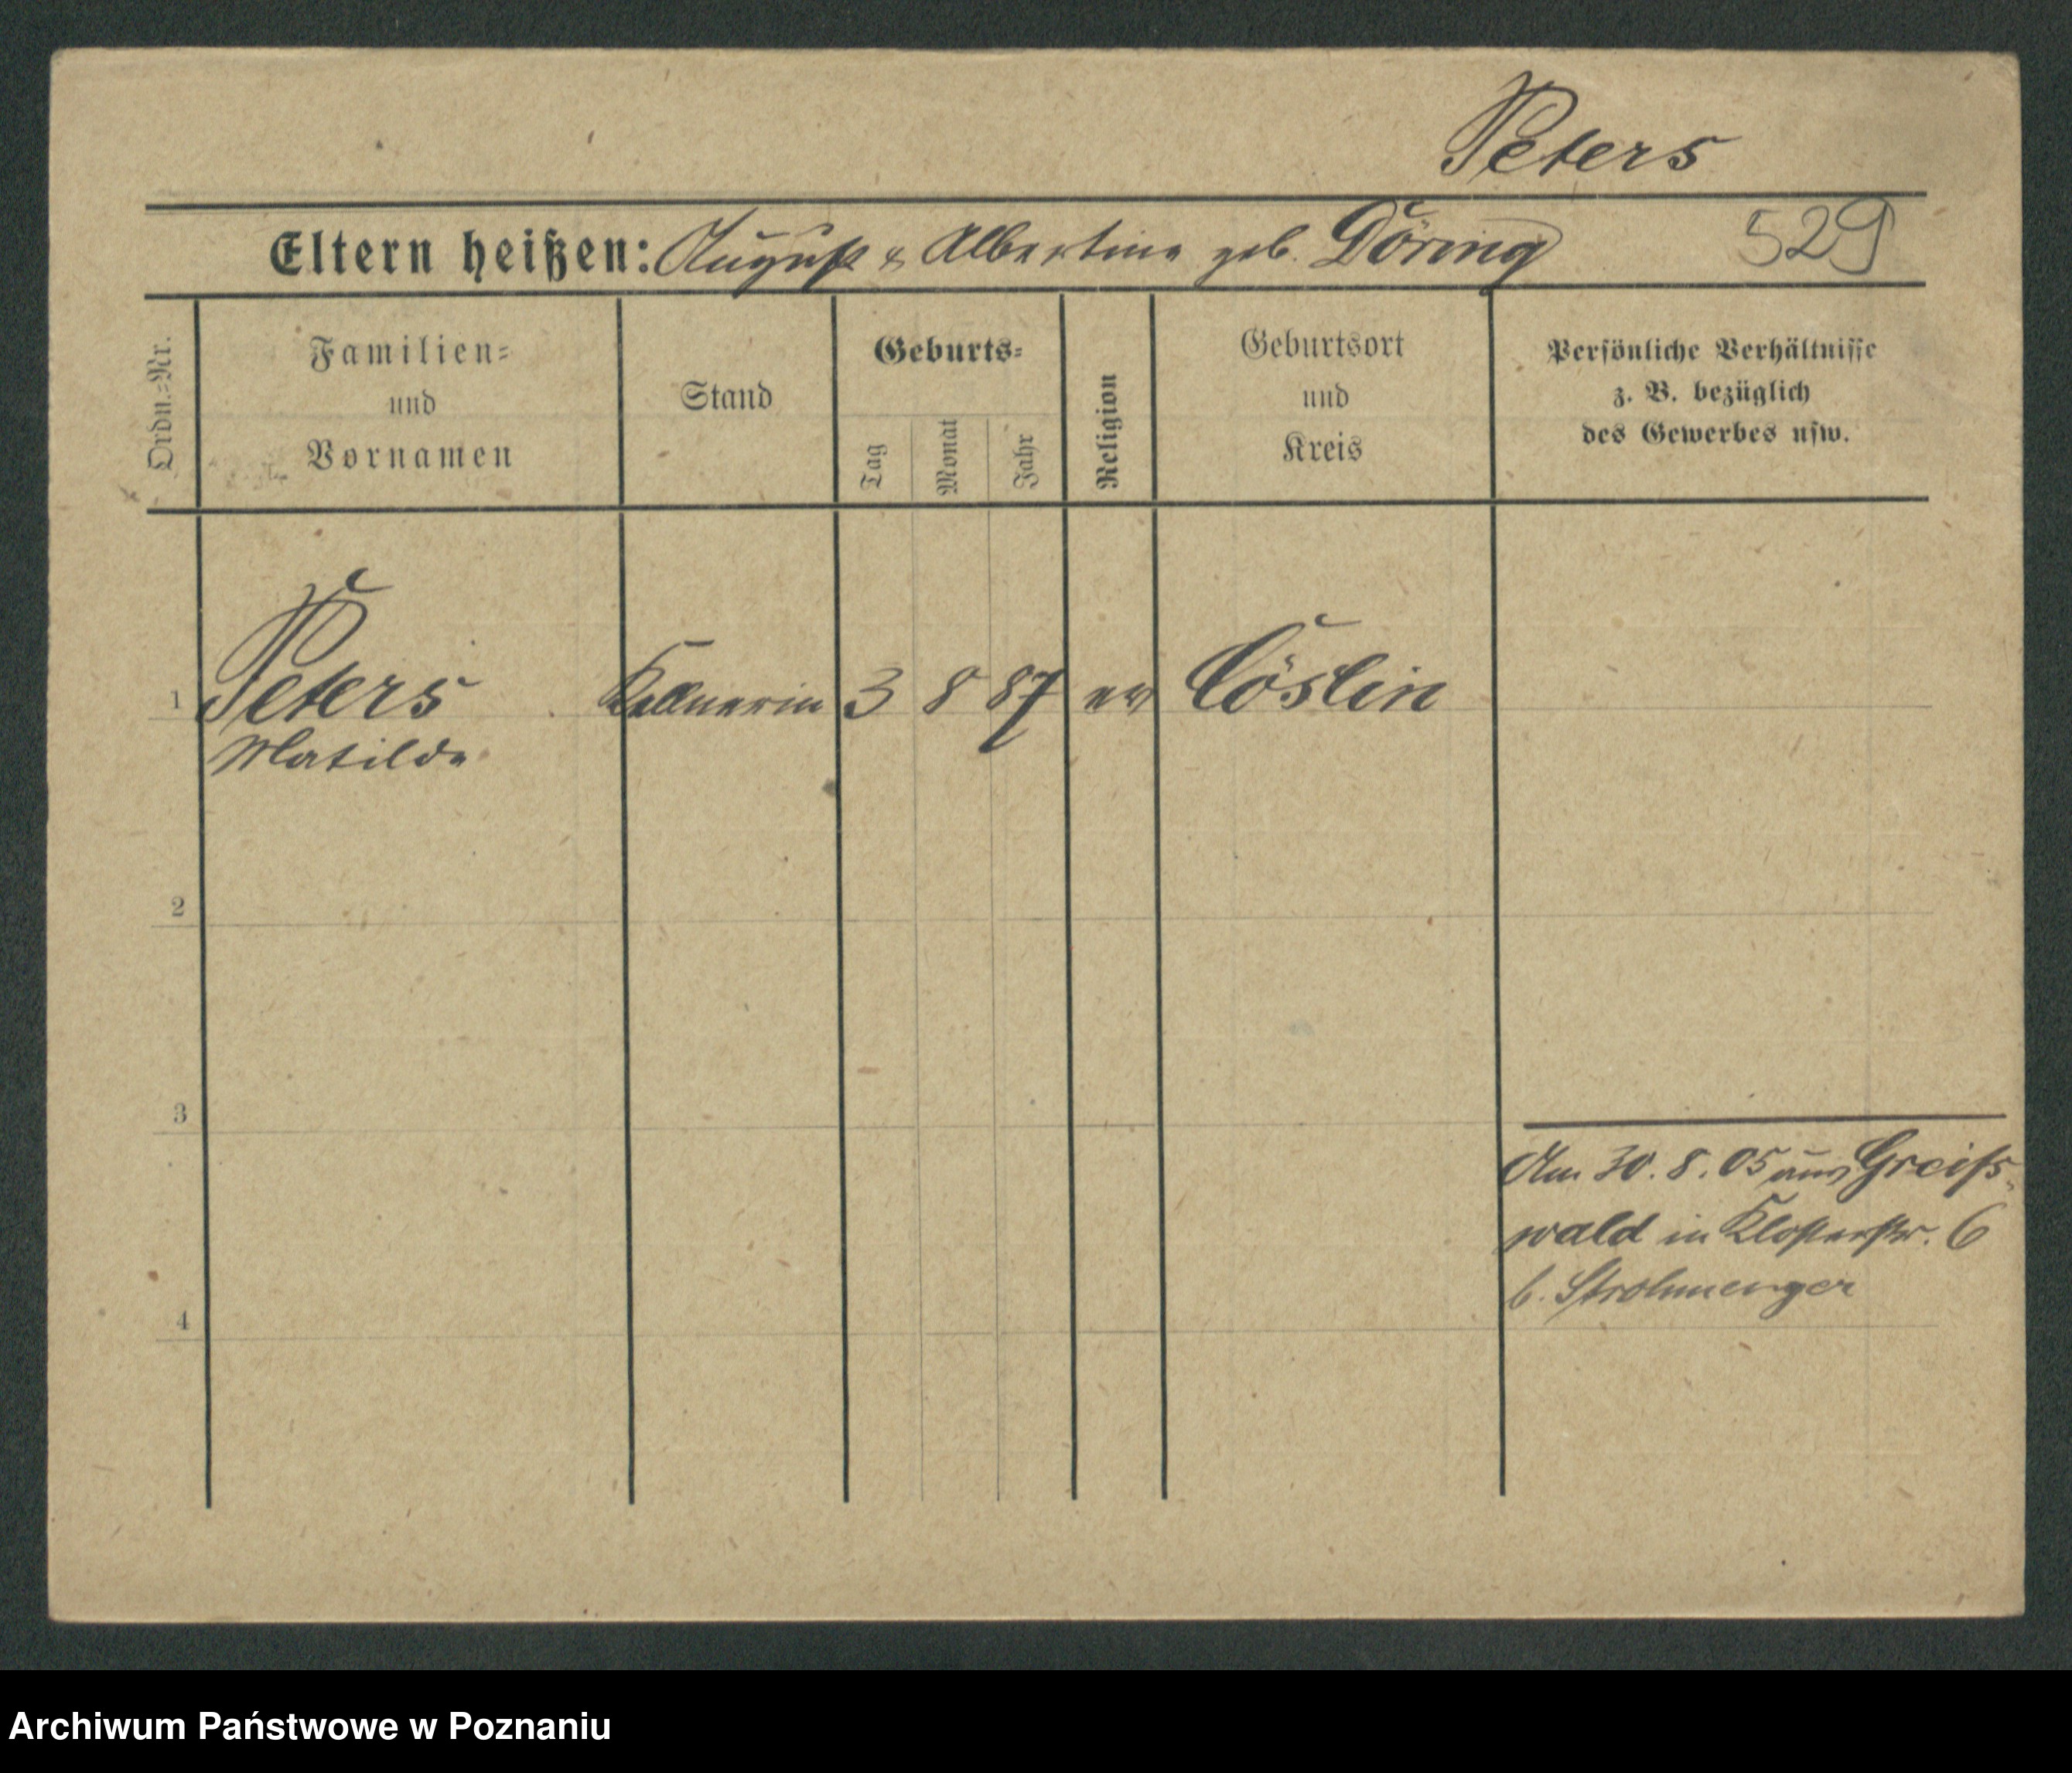 Peters
Eltern heißen: August & Albertine geb. Döring 529
Ordn.=Nr.
Familien=
und
Vornamen
Stand
Geburts=
Tag
Monat
Jahr
Religion
Geburtsort
und
Kreis
Persönliche Verhältnisse
z. B. bezüglich
des Gewerbes usw.
1 Peters Kellnerin 3 8 87 ev Cöslin
Matilde
2
3
Am 30. 8. 05 aus Greifs-
wald in Klosterstr. 6
b. Strohmenger
4
Archiwum Państwowe w Poznaniu